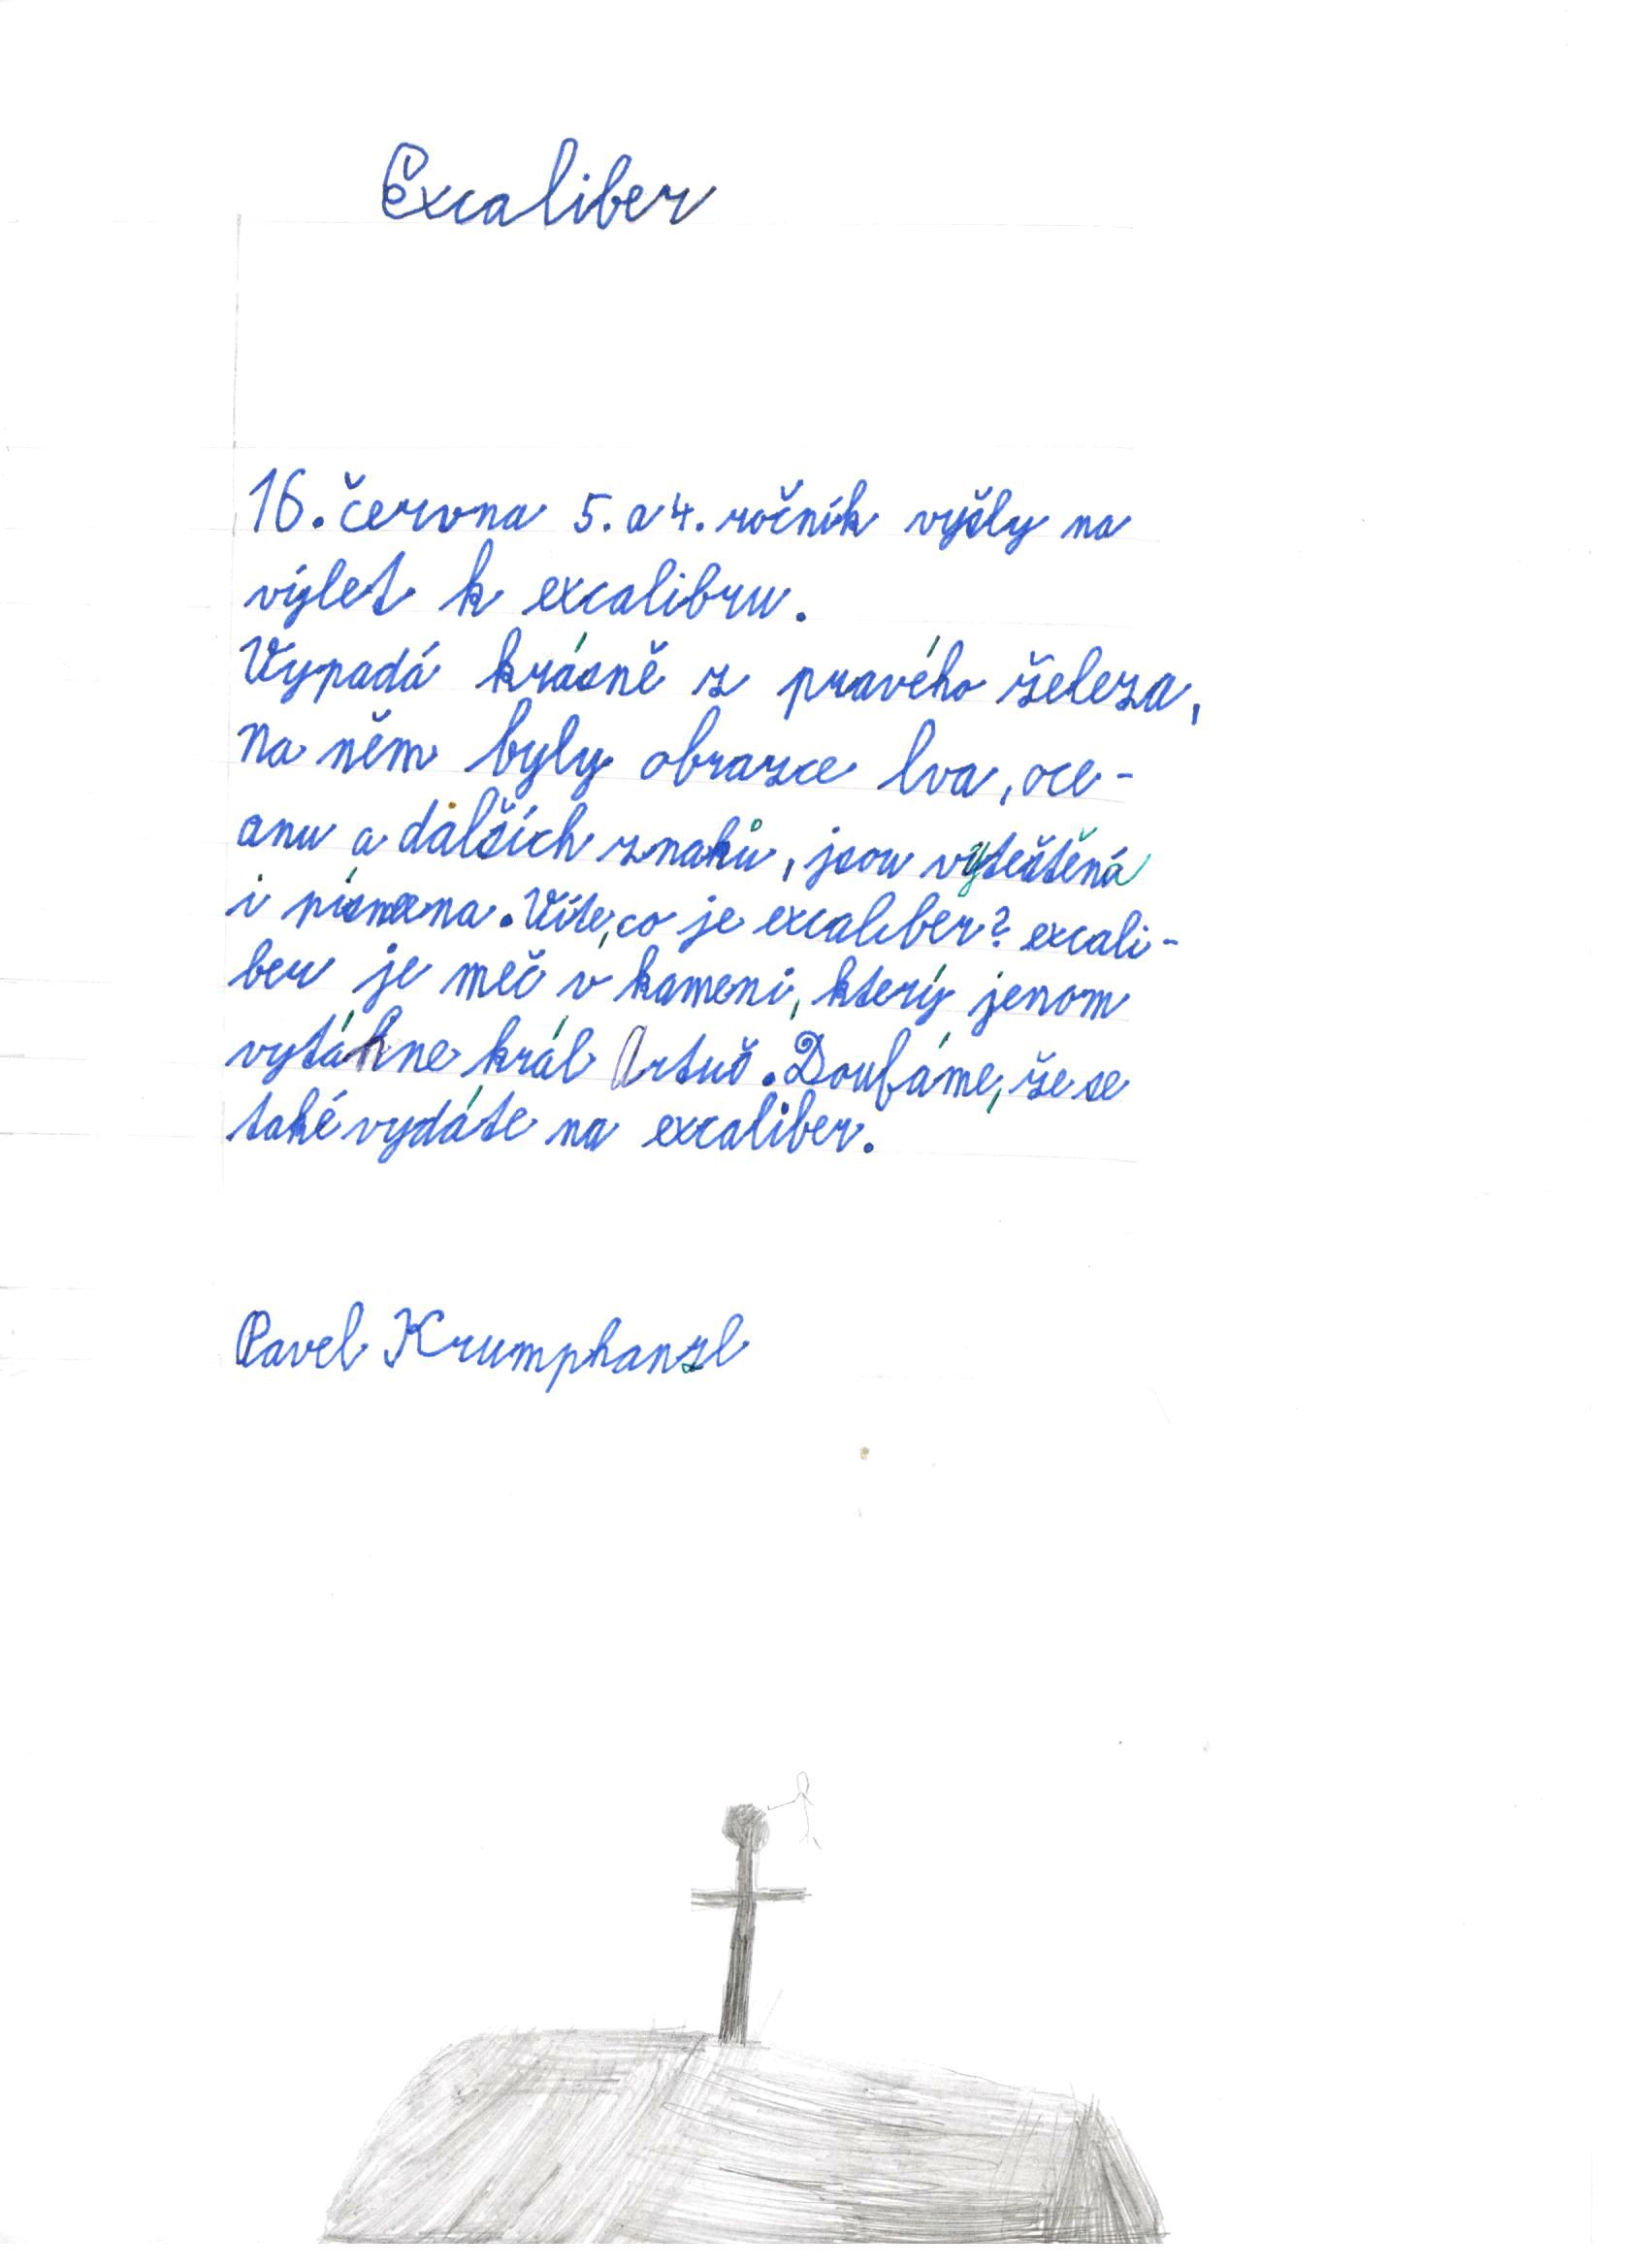 Excaliber
16. června 5. a 4. ročník vyšly na
výlet k excalibru.
Vypadá krásně z pravého železa,
na něm byly obrazce lva, oce-
anu a dalších znaků, jsou vyteštěná
i písmena. Víte, co je excaliber? excali-
ber je meč v kameni, který jenom
vytáhne král Artuš. Doufáme, že se
také vydáte na excaliber.
Pavel Krumphanzl